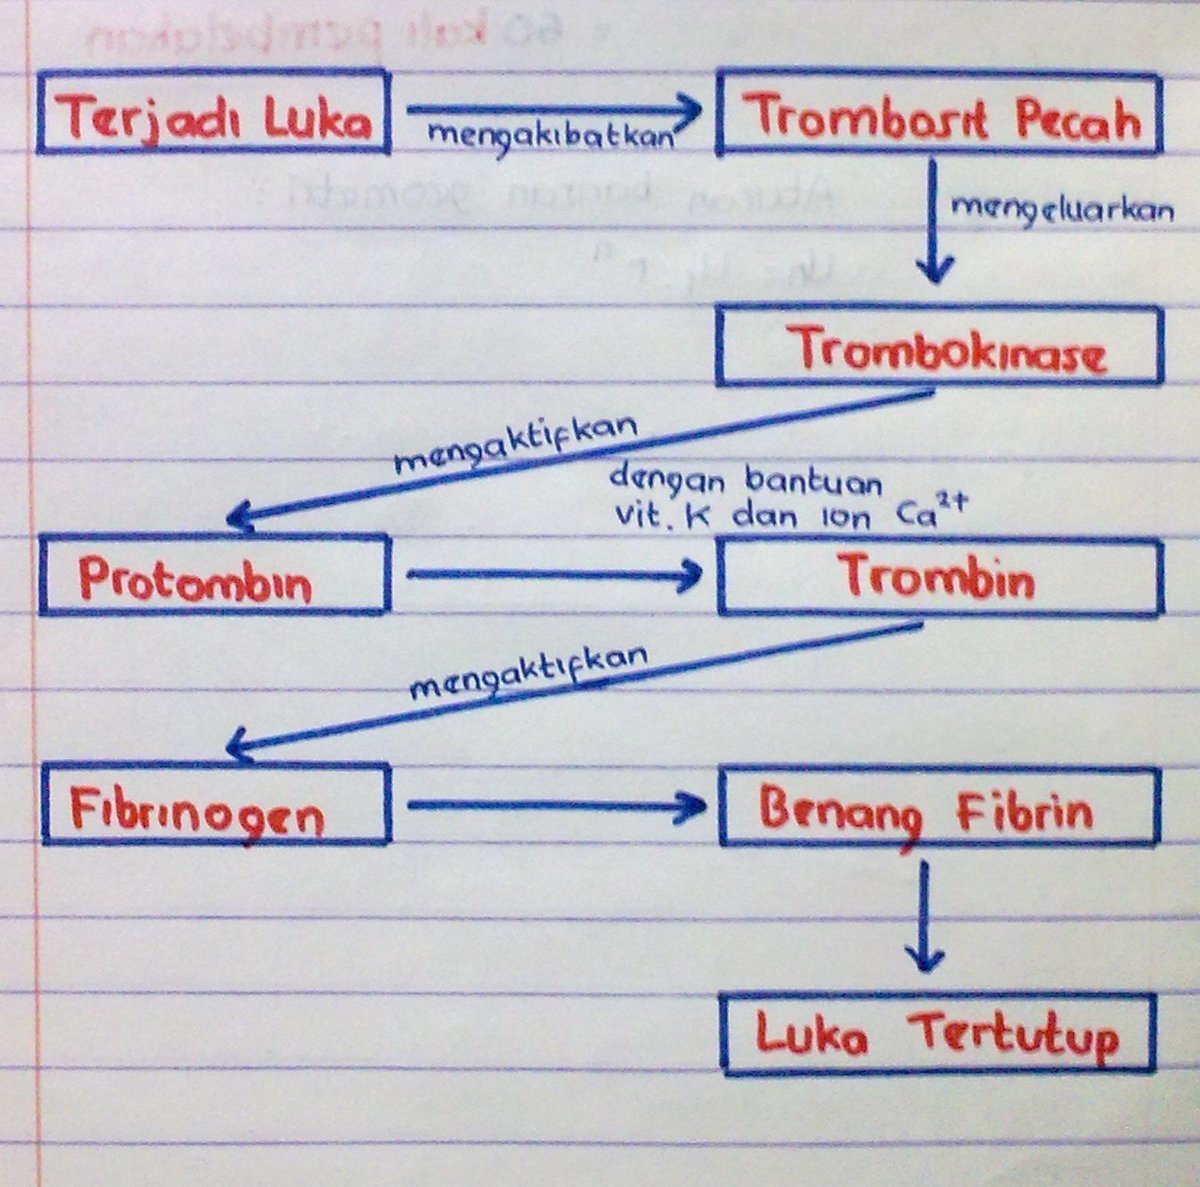 Terjadi Luka
mengakibatkan
Trombosit Pecah
mengeluarkan
Trombokinase
mengaktifkan
dengan bantuan
vit. K dan ion Ca²⁺
Protombin
Trombin
mengaktifkan
Fibrinogen
Benang Fibrin
Luka Tertutup